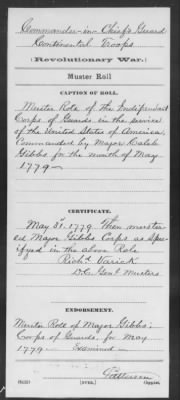 Commander-in-Chief's Guard
Continental Troops
(Revolutionary War.)
Muster Roll
CAPTION OF ROLL.
Muster Role of the Indipendant
Corps of Guards in the service
of the United States of America,
Commanded by Major Caleb
Gibbs for the month of May
1779—
CERTIFICATE.
May 31st 1779. Then muster-
ed Major Gibbs Corps as Spe-
cifyed in the above Role
Richd. Varick
D.C. Genl. Musters.
ENDORSEMENT.
Muster Role of Major Gibbs'
Corps of Guards, for May
1779— Examined—
Patterson
[OVER.]
Copyist.